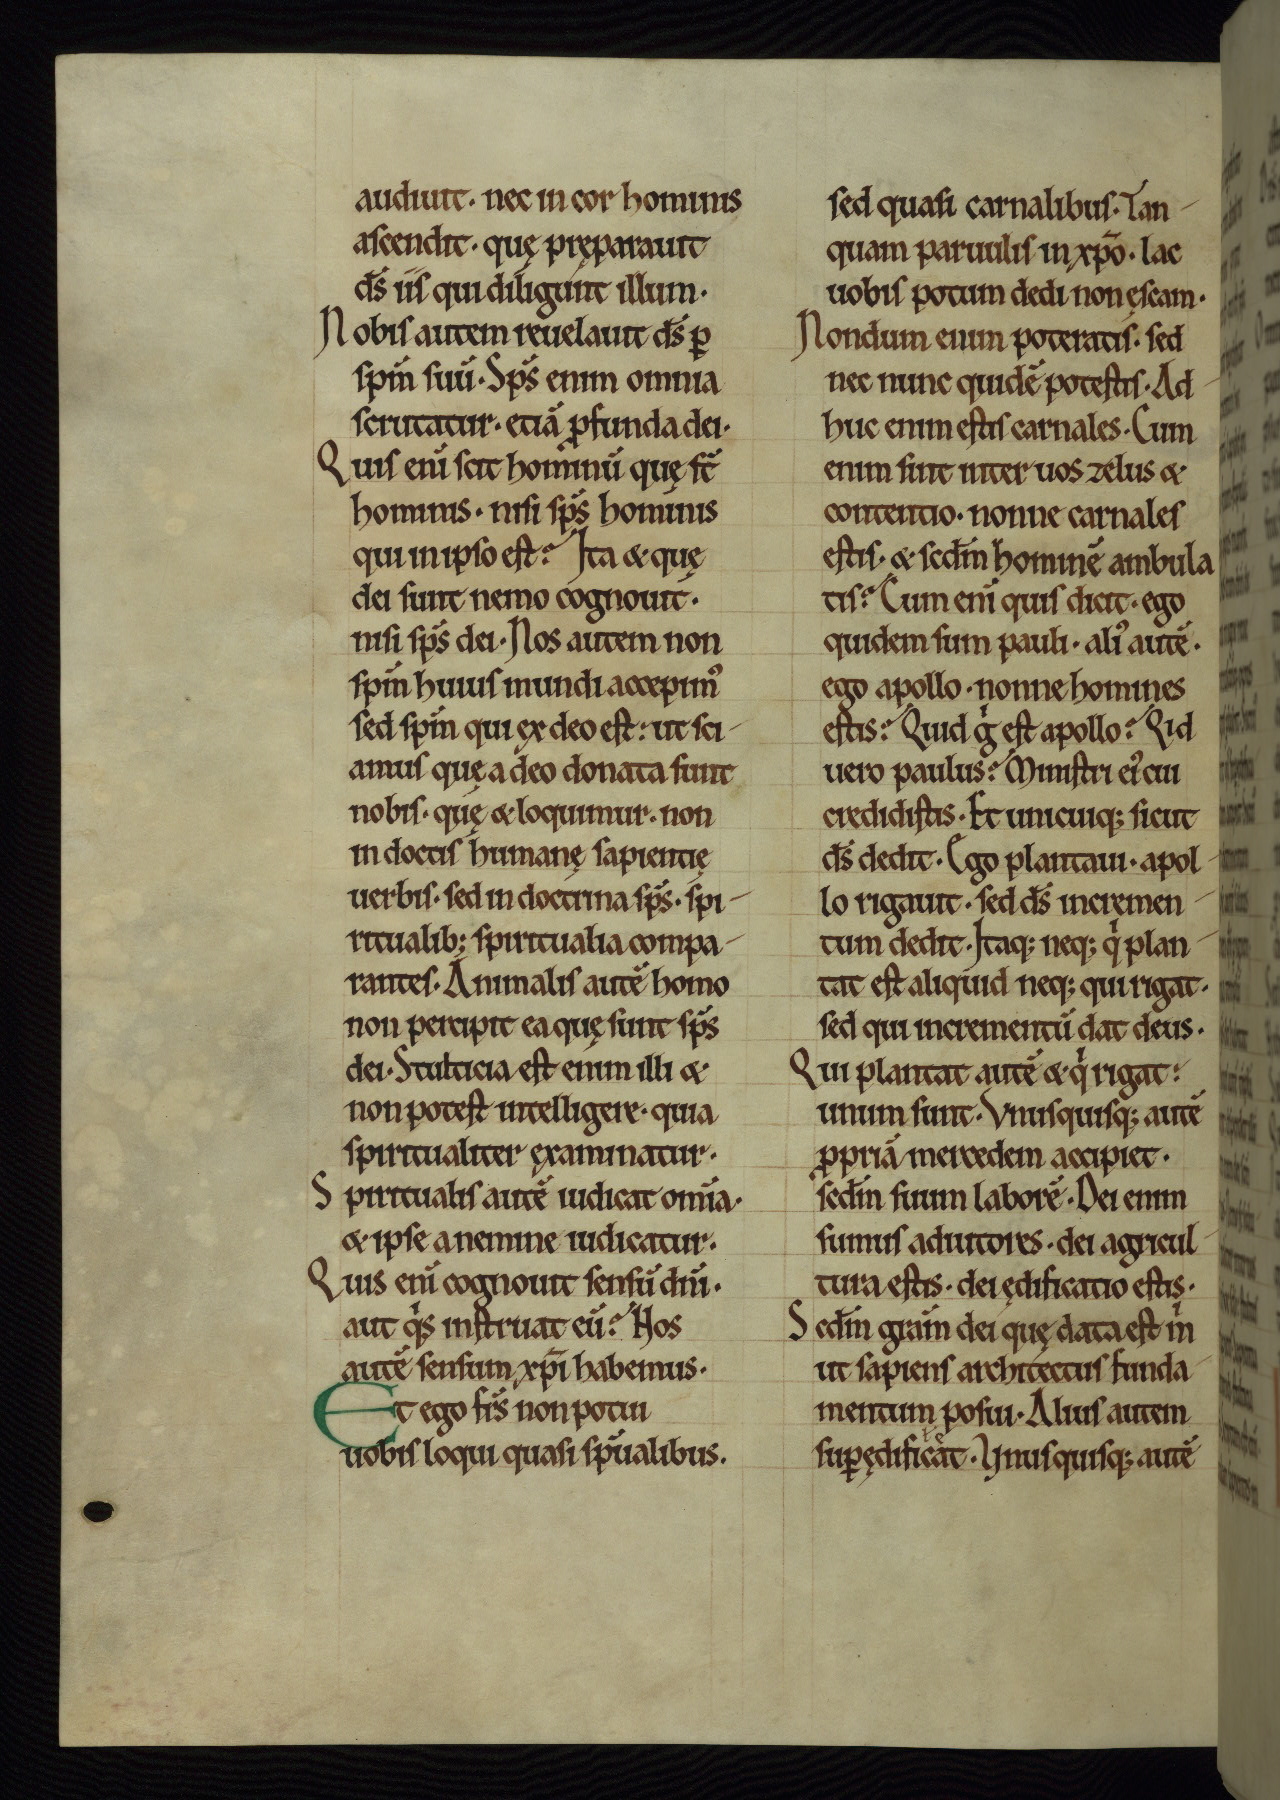 audiuit. nec in cor hominis
ascendit. quę pręparauit
ds̄ iis qui diligunt illum.
Nobis autem reuelauit ds̄ ꝑ
spm̄ suū. Sps̄ enim omnia
scrutatur. etiā ꝓfunda dei.
Quis enī scit hominū quę st̄
hominis. nisi sps̄ hominis
qui in ipso est? Ita & quę
dei sunt nemo cognouit.
nisi sps̄ dei. Nos autem non
spm̄ huius mundi accepim᷒
sed spm̄ qui ex deo est: ut sci-
amus quę a deo donata sunt
nobis. quę & loquimur. non
in doctis humanę sapientię
uerbis. sed in doctrina sps̄. spi-
ritualib; spiritualia compa-
rantes. Animalis autē homo
non percipit ea quę sunt sps̄
dei. Stulticia est enim illi &
non potest intelligere. quia
spiritualiter ęxaminatur.
Spiritualis autē iudicat om̄ia.
& ipse a nemine iudicatur.
Quis enī cognouit sensū dn̄i.
aut qͥs instruat eū? Nos
autē sensum xp̄i habemus.
Et ego frs̄ non potui
uobis loqui quasi sp̄ualibus.
sed quasi carnalibus. Tan-
quam paruulis in xp̄o. lac
uobis potum dedi non ęscam.
Nondum enim poteratis. sed
nec nunc quidē potestis. Ad-
huc enim estis carnales. Cum
enim sint inter uos zelus &
contentio. nonne carnales
estis. & scdm̄ hominē ambula
tis? Cum enī quis dicit. ego
quidem sum pauli. ali᷒ autē.
ego apollo. nonne homines
estis? Quid gͥ est apollo? Qid
uero paulus? Ministri ei᷒ cui
credidistis. Et unicuiq; sicut
ds̄ dedit. Ego plantaui. apol-
lo rigauit. sed ds̄ incręmen-
tum dedit. Itaq; neq; qͥ plan-
tat est aliquid neq; qui rigat.
sed qui incrementū dat deus.
Qui plantat autē & qͥ rigat:
unum sunt. Vnusquisq; autē
ꝓpriā mercedem accipiet.
scdm̄ suum laborē. Dei enim
sumus adiutores. dei agricul-
tura estis. dei ędificatio estis.
Scdm̄ gra͞m dei quę data est m̄
ut sapiens architectus funda-
mentum posui. Alius autem
suꝑędificat. Vnusquisq; autē